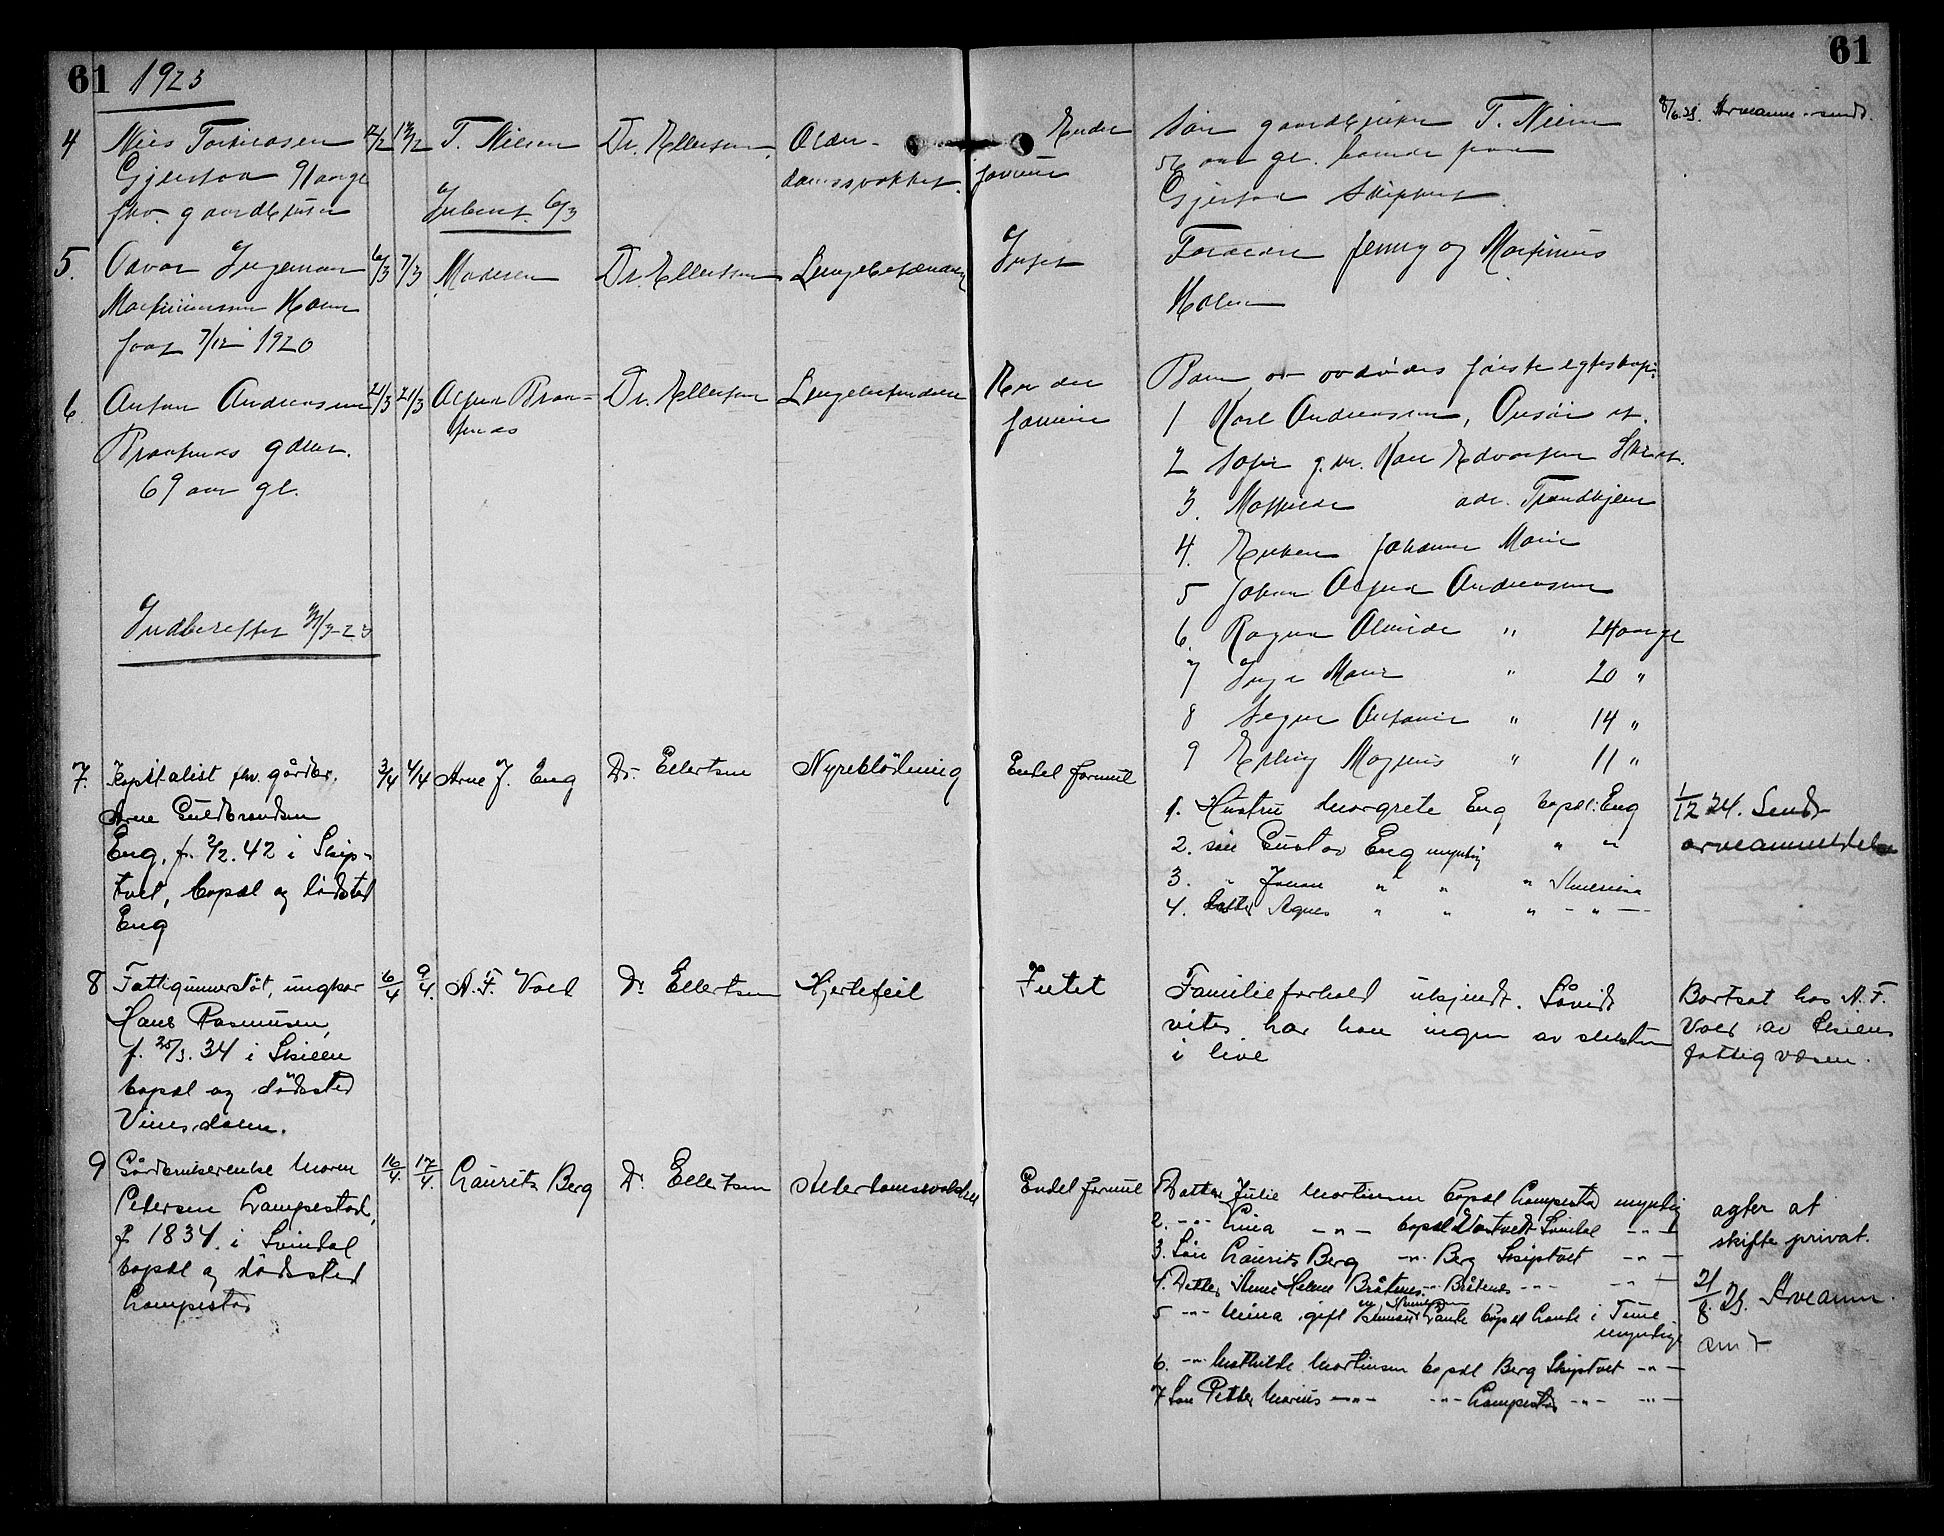 61 1923
61
4 Gjerstad 91 aar gl.
fhv. gaardbruker
12/2 T. Nielsen
Indberet. 6/3
Dr. Ellertsen
Alder-
domssvakhet
Endel
formue
Søn gaardbruker T. Nielsen
56 aar gl. boende paa
Gjerstad Skiptvet
8/6.23. Arveanm. sendt.
5. Odvar Ingeman
Martiniussen Holm
født 7/12 1920
6/3 7/3
Dr. Ellertsen
Lungebetændelse
Intet
Forældre Jenny og Martinius
Holm
6. Anton Andreassen
Braatenes gdbr.
69 aar gl.
21/3 21/3
Alfred Braa-
tenes
Dr. Ellertsen
Lungebetændelse
Endel
formue
Barn av avdødes første egteskap:
1 Karl Andreassen,
2 Sofie g. m. Karl Edvardsen
3. adr. Trondhjem
4. Enken Johanne Marie
5 Johan Alfred Andreassen
6. Ragna Alvilde " 24 aar gl
7 Inga Marie " 20 "
8 Signe Antonie " 14 "
9 Erling Magnus " 11 "
Indberettet 21/3-23
7. Kapitalist fhv. gårdbr.
Arne Guldbrandsen
Eng, f. 2/2.42 i Skip-
tvet, bopæl og dødsted
Eng
3/4 4/4
Arne J. Eng
Dr. Ellertsen
Nyreblødning
Endel formue
1. Hustru Margrete Eng bopæl: Eng
2. søn Gustav Eng myndig " "
3. " Johan " " " Amerika
4. datter Agnes " " " - " -
1/12 24. Sendt
arveanmeldelse
8 Fattigunderstøt, ungkar
Hans Rasmusen,
f. 25/3.34 i Skieen
bopæl og dødsted
6/4 9/4.
A. F. Vold
Dr. Ellertsen
Hjertefeil
Intet
Familieforhold ukjendt. Såvidt
vites har han ingen av slekten
i live
Bortsat hos A. F.
Vold av Skiens
fattigvæsen.
9 Gårdbrukerenke Maren
Petersen Lampestad,
f. 1834. i Svindal
bopæl og dødsted
Lampestad
16/4. 17/4.
Laurits Berg
Dr. Ellertsen
Alderdomssvakhet
Endel formue
Datter Julie Martinsen bopæl Lampestad myndig
2. -"- Lina -"- bopæl Svindal -"-
3. Søn Laurits Berg -"- Berg Skiptvet -"-
4. Datter Anne Helene Bråtenes -"- Bråtenes -"- -"-
5 -"- Mina gift bopæl i Tune
myndige
6. -"- Mathilde Martinsen bopæl Berg Skiptvet -"-
7 Søn Petter Marius -"- -"- Lampestad -"- -"-
agter at
skifte privat.
21/8. 23. Arveanm.
sendt